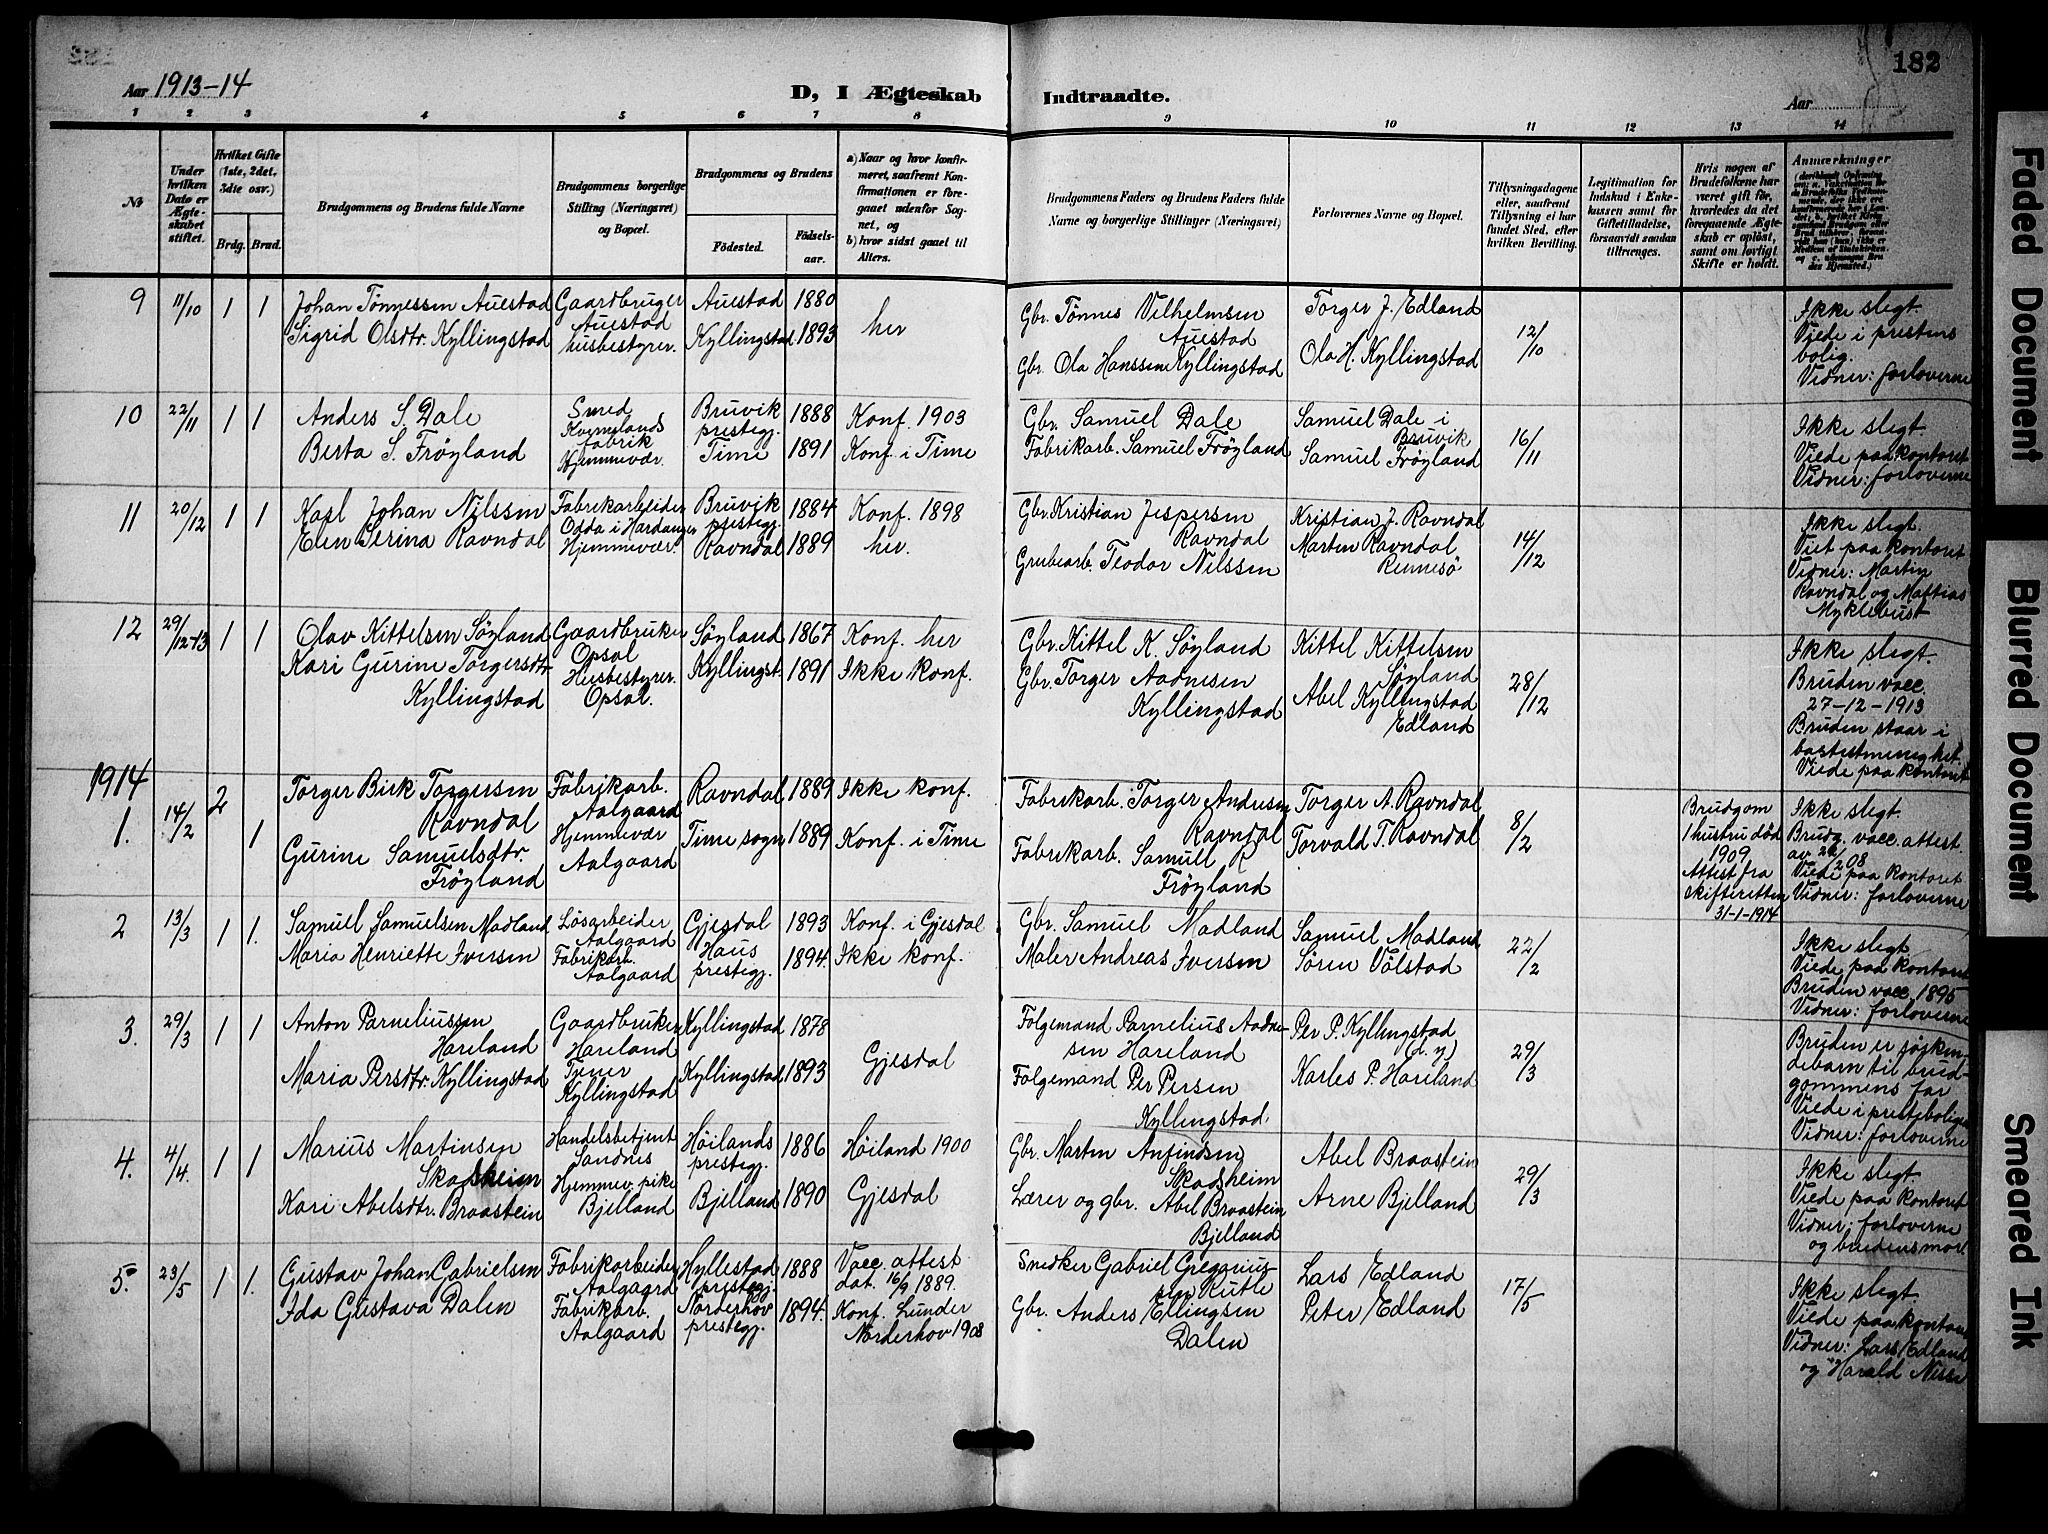 182
Aar 1913-14
D, I Ægteskab Indtraadte.
Aar
1 2 3 4 5 6 7 8 9 10 11 12 13 14
No
Under hvilken Dato er Ægteskabet stiftet.
Hvilket Gifte (1ste, 2det, 3die osv.)
Brdg. Brud.
Brudgommens og Brudens fulde Navne
Brudgommens borgerlige Stilling (Næringsvei) og Bopæl.
Brudgommens og Brudens
Födested. Födselsaar.
a) Naar og hvor konfirmeret, saafremt Konfirmationen er foregaaet udenfor Sognet, og
b) hvor sidst gaaet til Alters.
Brudgommens Faders og Brudens Faders fulde Navne og borgerlige Stillinger (Næringsvei)
Forlovernes Navne og Bopæl.
Tillysningsdagene eller, saafremt Tillysning ei har fundet Sted, efter hvilken Bevilling.
Legitimation for Indskud i Enkekassen samt for Giftetilladelse, forsaavidt saadan tiltrænges.
Hvis nogen af Brudefolkene har været gift før, hvorledes da det foregaaende Ægteskab er oplöst, samt om lovligt Skifte er holdt.
Anmærkninger
9 11/10 1 1
Johan Tönnessen Auestad
Sigrid Olsdtr. Kyllingstad
Gaardbruger
Auestad
husbestyrer.
Auestad 1880
Kyllingstad 1893
her
Gbr. Tönnes Vilhelmsen
Auestad
Gbr. Ola Hanssen Kyllingstad
Torger J. Edland
Ola H. Kyllingstad
12/10
Ikke slegt.
Viede i prestens
bolig.
Vidner: forloverne
10 22/11 1 1
Anders S. Dale
Berta S. Fröyland
Smed
Kvernlands
fabrik
Hjemmevær.
Bruvik
prestegj. 1888
Time 1891
Konf. 1903
Konf. i Time
Gbr. Samuel Dale
Fabrikarb. Samuel Fröyland
Samuel Dale i
Bruvik
Samuel Fröyland
16/11
Ikke slegt
Viede paa kontoret
Vidner: forloverne
11 20/12 1 1
Karl Johan Nilssen
Elen Serina Ravndal
Fabrikarbeider
Odda i Hardanger
Hjemmevær.
Bruvik
prestegj. 1884
Ravndal 1889
Konf. 1898
her.
Gbr. Kristian Jespersen
Ravndal
Grubearb. Teodor Nilssen
Kristian J. Ravndal
Martin Ravndal
Rennesö
14/12
Ikke slegt.
Viet paa kontoret
Vidner: Martin
Ravndal og Mattias
Myklebust
12 29/12-13 1 1
Olav Kittelsen Söyland
Kari Gurine Torgersdtr.
Kyllingstad
Gaardbruker
Opsal
Husbestyrer.
Opsal.
Söyland 1867
Kyllingst. 1891
Konf. her
Ikke konf.
Gbr. Kittel K. Söyland
Gbr. Torger Aadnesen
Kyllingstad
Kittel Kittelsen
Söyland
Abel Kyllingstad
Edland
28/12
Ikke slegt.
Bruden vacc.
27-12-1913
Bruden staar i
Viede paa kontoret
1914
1. 14/2 2 1
Torger Birk Torgersen
Ravndal
Gurine Samuelsdtr.
Fröyland
Fabrikarb.
Aalgaard
Hjemmevær
Aalgaard
Ravndal 1889
Time sogn 1889
Ikke konf.
Konf. i Time
Fabrikarb. Torger Andresen
Ravndal
Fabrikarb. Samuel R
Fröyland
Torger A. Ravndal
Torvald T. Ravndal
8/2
Brudgom
1 hustru död
1909.
Attest fra
skifteretten
31-1-1914
Ikke slegt.
Brudg. vacc. attest.
Viede paa kontoret
Vidner: forloverne
2 13/3 1 1.
Samuel Samuelsen Madland
Maria Henriette Iversen
Løsarbeider
Aalgaard
Fabrikarb.
Aalgaard
Gjesdal 1893
Haus
prestegj. 1894.
Konf. i Gjesdal
Ikke konf.
Gbr. Samuel Madland
Maler Andreas Iversen
Samuel Madland
Sören Völstad
22/2
Ikke slegt
Viede paa kontoret
Bruden vacc. 1895
Vidner: forloverne
3. 29/3 1 1
Anton Parneliussen
Hareland
Maria Persdtr. Kyllingstad
Gaardbruker
Hareland
Tyner
Kyllingstad
Kyllingstad 1878
Kyllingstad 1893
Gjesdal
Folgemand Parnelius Aadne-
sen Hareland
Folgemand Per Persen
Kyllingstad.
Per P. Kyllingstad
(d. y)
Karles P. Hareland
29/3
Bruden er søsken-
debarn til brud-
gommens far
Viede i presteboligen
Vidner: forloverne
4. 4/4. 1 1
Marius Martinsen
Skadsheim
Kari Abelsdtr. Braastein
Handelsbetjent
Sandnes
Hjemmev. pike
Bjelland
Höilands
prestegj. 1886
Bjelland 1890
Höiland 1900
Gjesdal
Gbr. Martin Anfindsen
Skadsheim
Lærer og gbr. Abel Braastein
Bjelland
Abel Braastein
Arne Bjelland
29/3
Ikke slegt
Viede paa kontoret
Vidner: forloverne
og brudens mor
5. 23/5 1 1.
Gustav Johan Gabrielsen
Ida Gustava Dalen
Fabrikarbeider
Aalgaard
Fabrikarb.
Aalgaard
Hyllestad
prestegj. 1888
Norderhov
prestegj. 1894.
Vacc. attest
dat. 16/9 1889.
Konf. Lunder
Norderhov 1908
Snedker Gabriel Gregorius-
sen Rutle
Gbr. Anders Ellingsen
Dalen
Lars Edland
Peter Edland
17/5
Ikke slegt
Viede paa kontoret
Vidner: Lars Edland
og Harald Nisse
Faded Document
Blurred Document
Smeared Ink